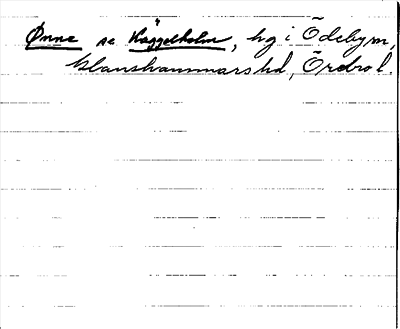 Önne se Häggelholm, hg i Ödebym,
Glanshammarshd, Örebrol.